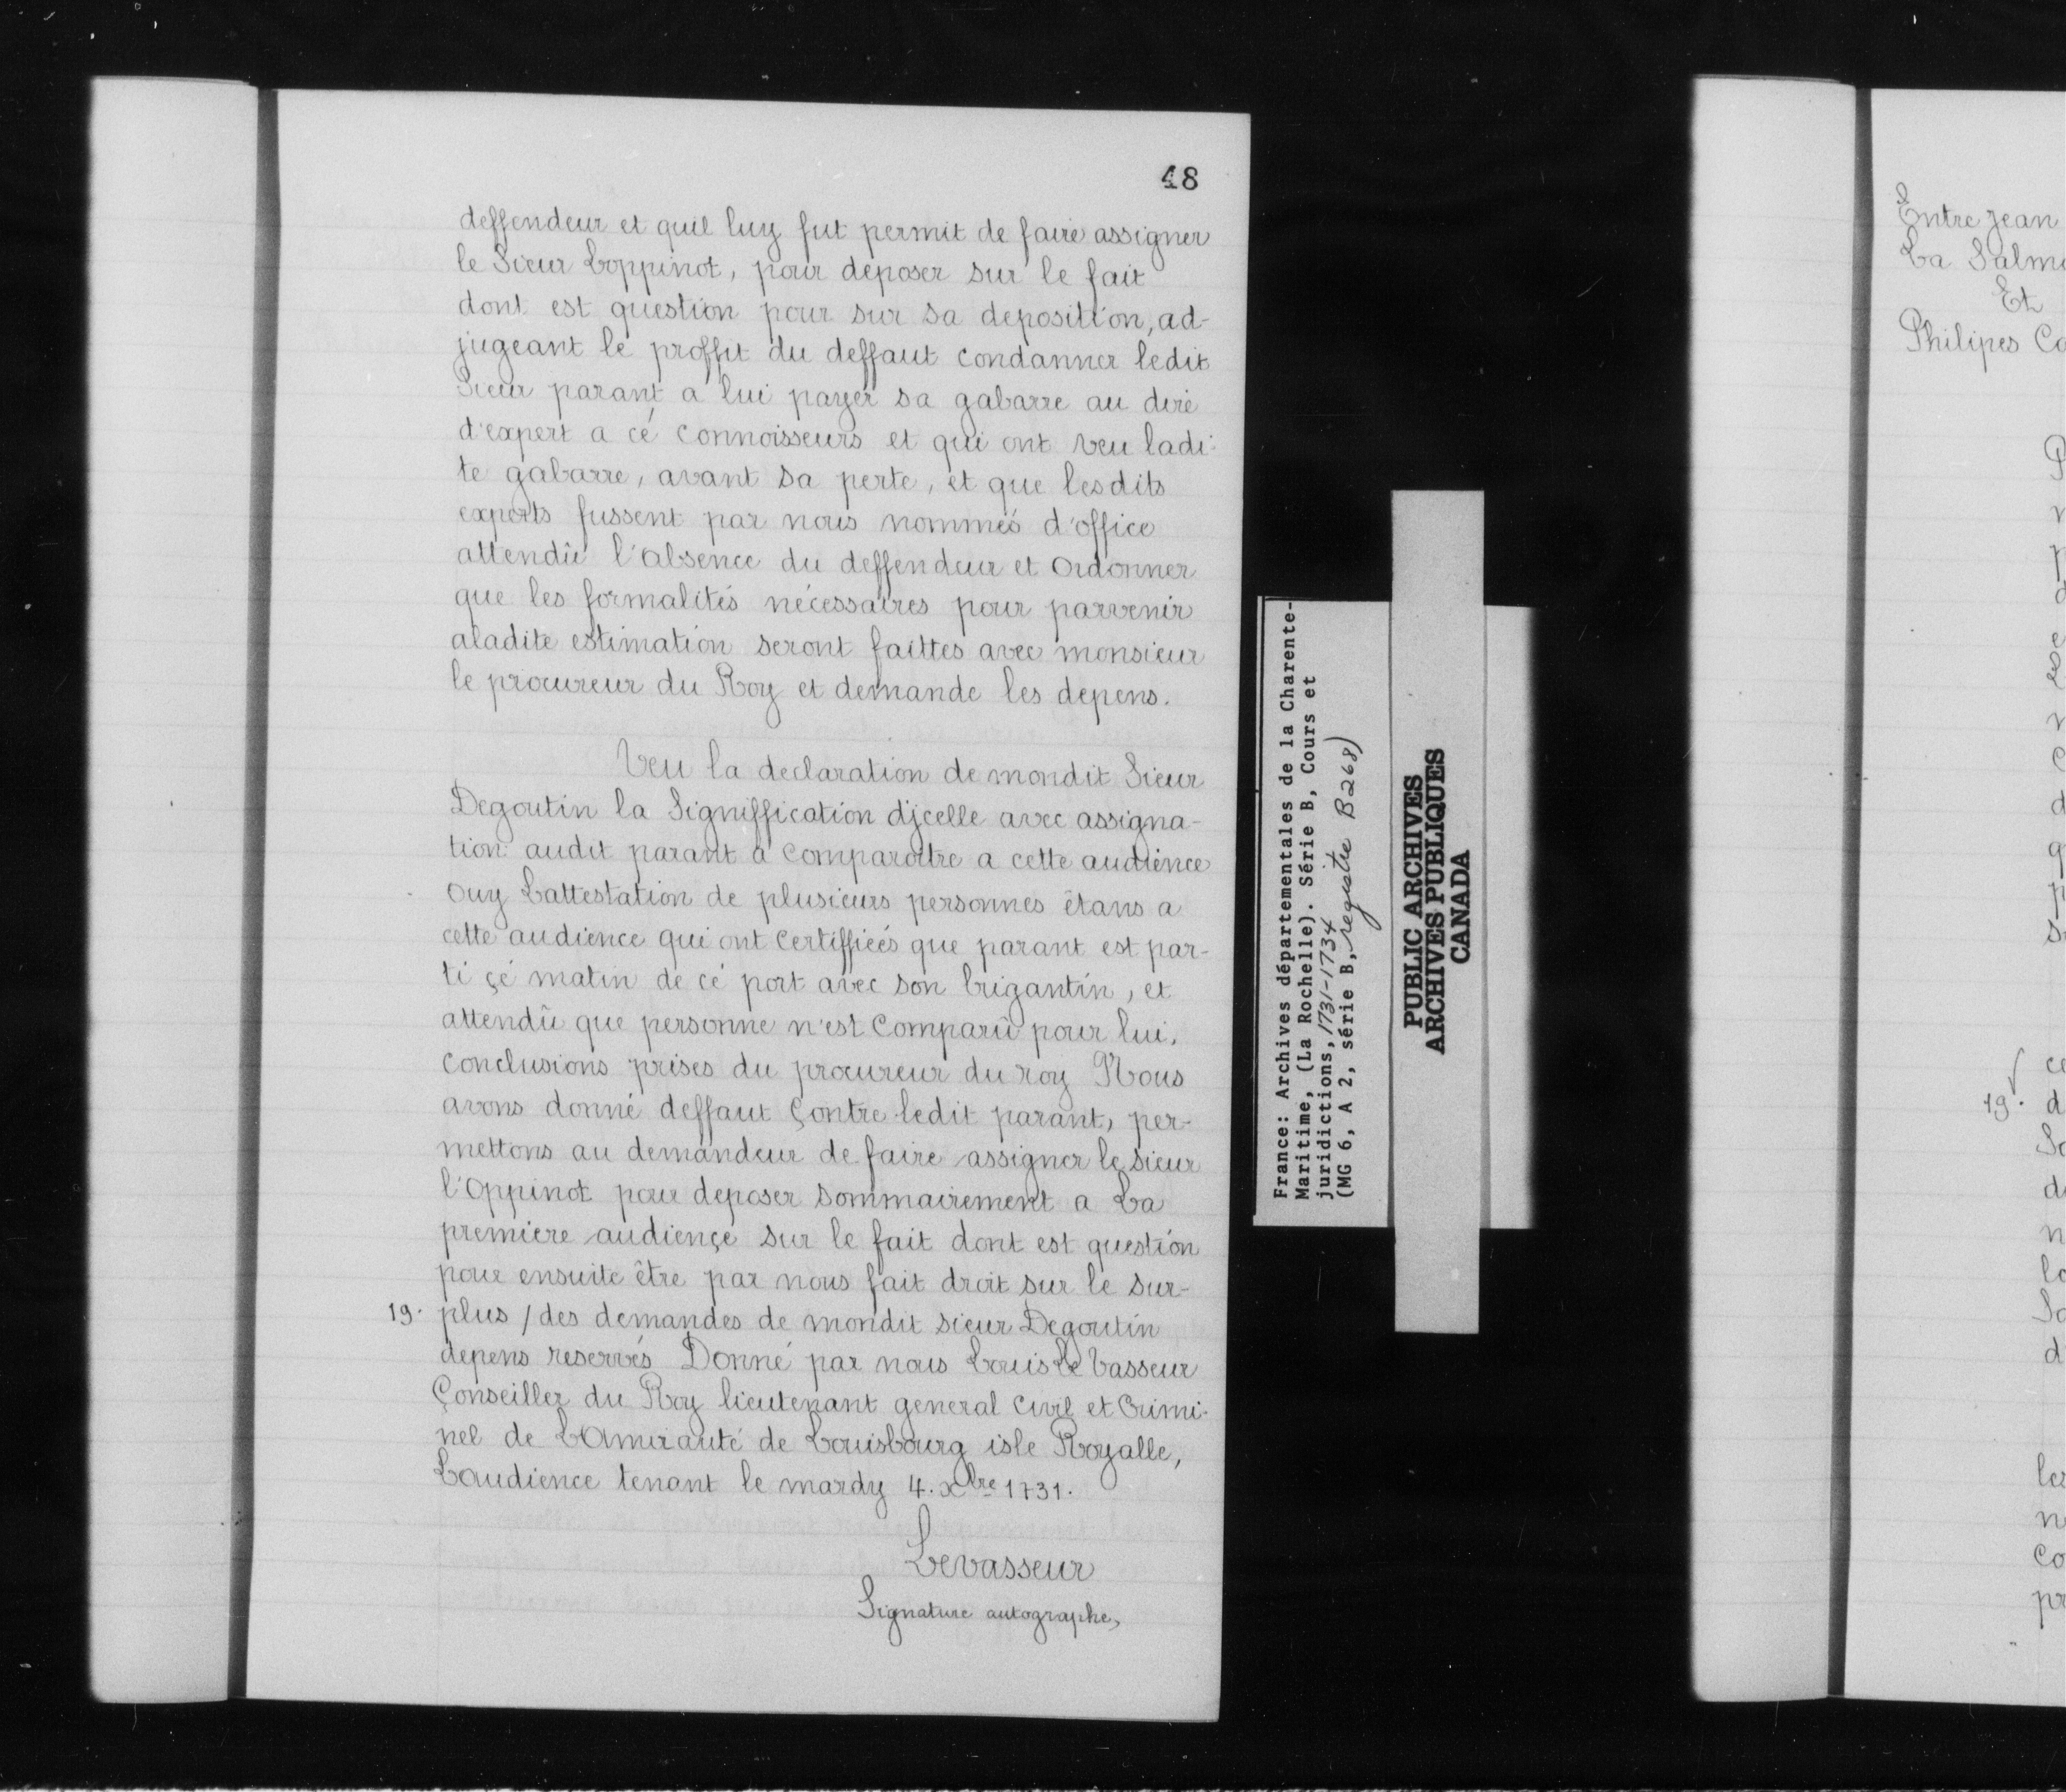 48
deffendeur et quil luy fut permit de faire assigner
le Sieur Loppinot, pour deposer sur le fait
dont est question pour sur sa deposition, ad-
jugeant le proffit du deffaut condanner ledit
Sieur parant a lui payer sa gabarre au dire
d'expert a cé connoisseurs et qui ont veu ladi-
te gabarre, avant sa perte, et que lesdits
experts fussent par nous nommés d'office
attendû l'absence du deffendeur et ordonner
que les formalités nécessaires pour parvenir
aladite estimation seront faittes avec monsieur
le procureur du Roy et demande les depens.
Veu la declaration de mondit Sieur
Degoutin la Signiffication d'jcelle avec assigna-
tion audit parant a comparoitre a cette audience
ouy Lattestation de plusieurs personnes êtans a
cette audience qui ont certiffiéés que parant est par-
ti çé matin de cé port avec son brigantin, et
attendû que personne n'est comparû pour lui,
conclusions prises du procureur du roy Nous
avons donné deffaut Contre ledit parant, per-
mettons au demandeur de faire assigner le sieur
l'Oppinot pour deposer sommairement a La
premiere audiençe sur le fait dont est question
pour ensuite être par nous fait droit sur le sur-
19. plus / des demandes de mondit sieur Degoutin
depens reservés Donné par nous Louis Le Vasseur
Çonseiller du Roy lieutenant general Civil et Crimi-
nel de LAmirauté de Louisbourg isle Royalle,
Laudience tenant le mardy 4. xbre 1731.
Levasseur
Signature autographe,
France: Archives départementales de la Charente-
Maritime, (La Rochelle). Série B, Cours et
juridictions, 1731-1734
(MG 6, A 2, série B, registre B268)
PUBLIC ARCHIVES
ARCHIVES PUBLIQUES
CANADA
Entre Jean
La
Et
Philipes
19.